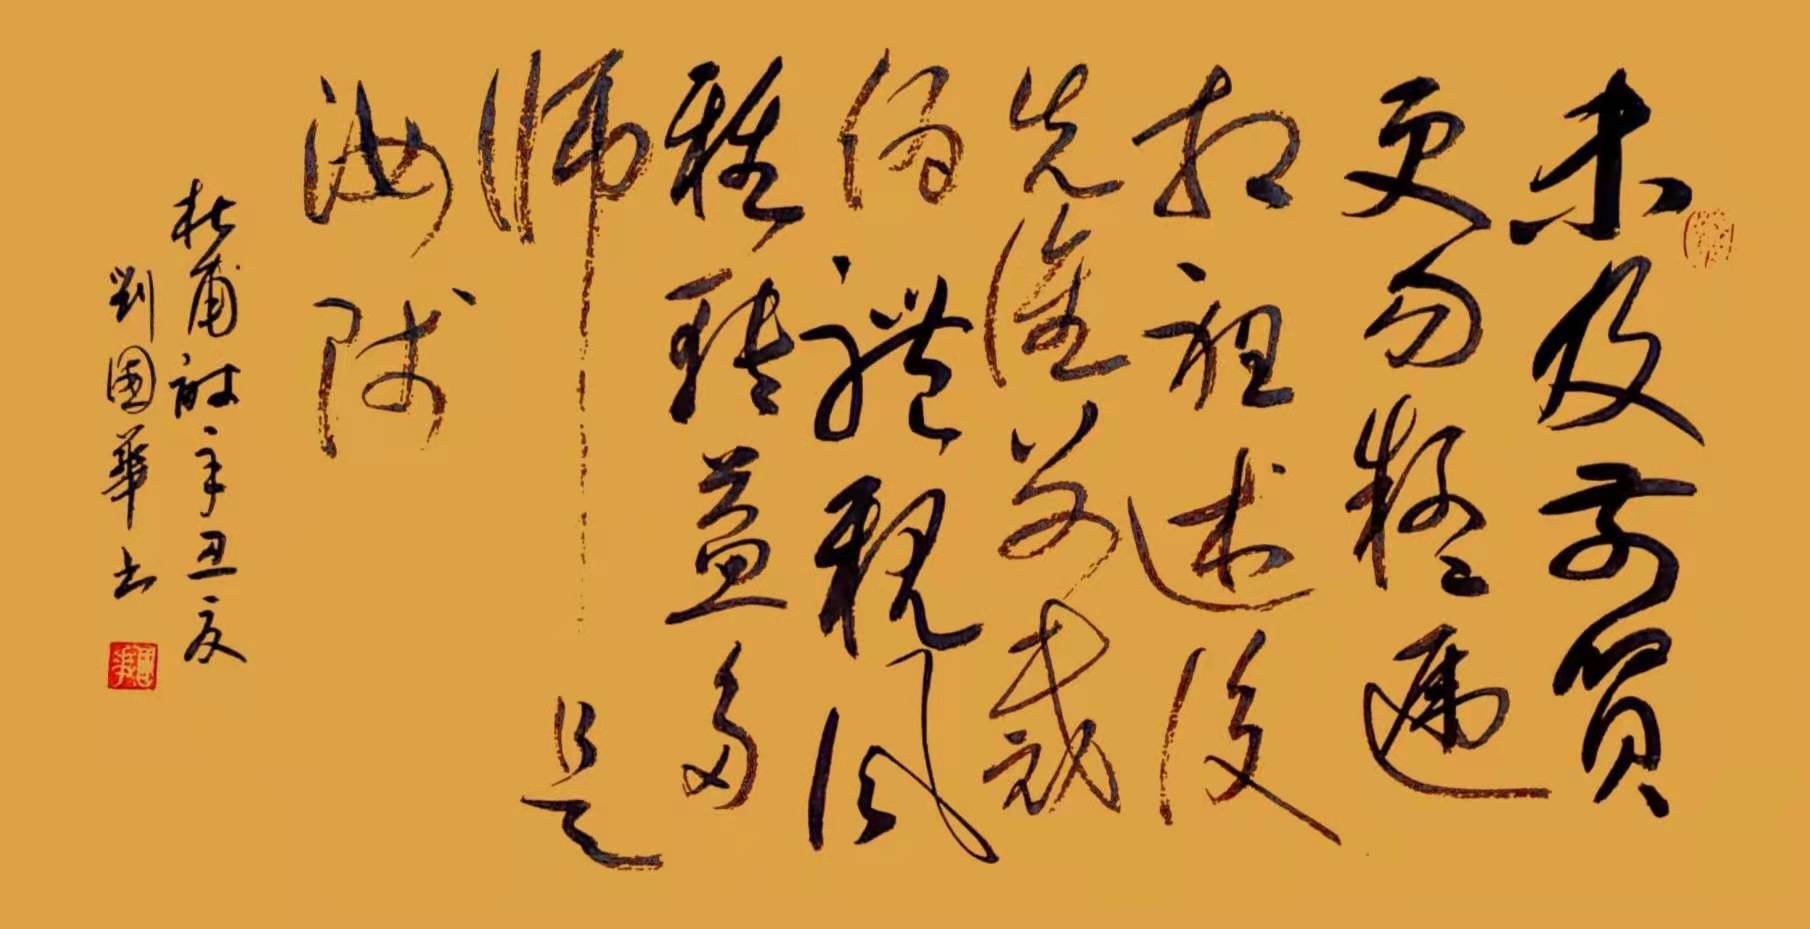 未及前賢
更勿疑遞
相祖述復
先誰别裁
偽體親風
雅轉益多
师是
汝师
杜甫詩辛丑夏
劉國華书